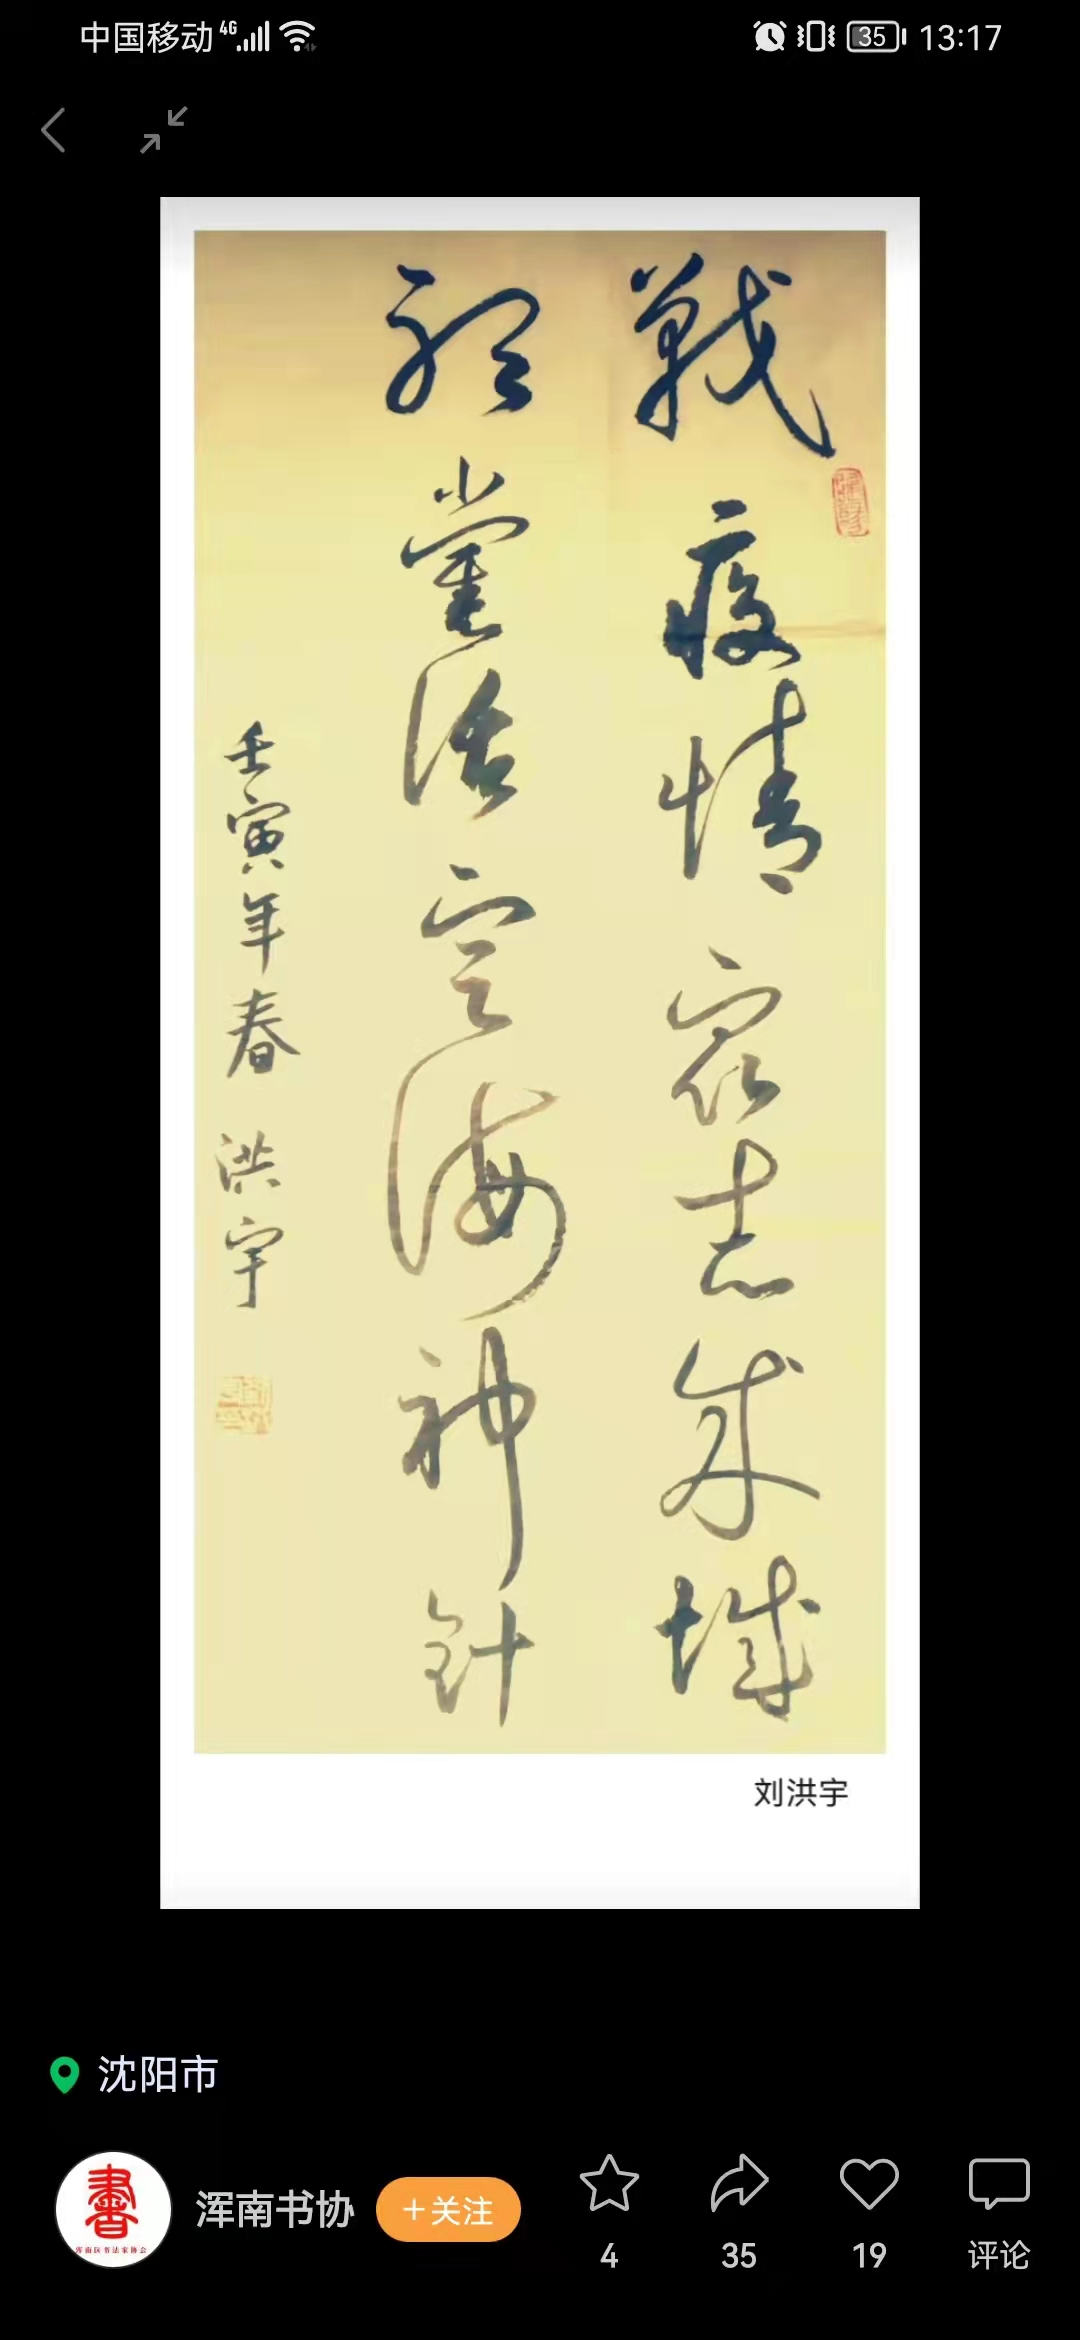 中国移动 4G 35 13:17
戰疫情众志成城
聽党话定海神針
壬寅年春 洪宇
刘洪宇
沈阳市
書
浑南区书法家协会
浑南书协
+关注
4
35
19
评论